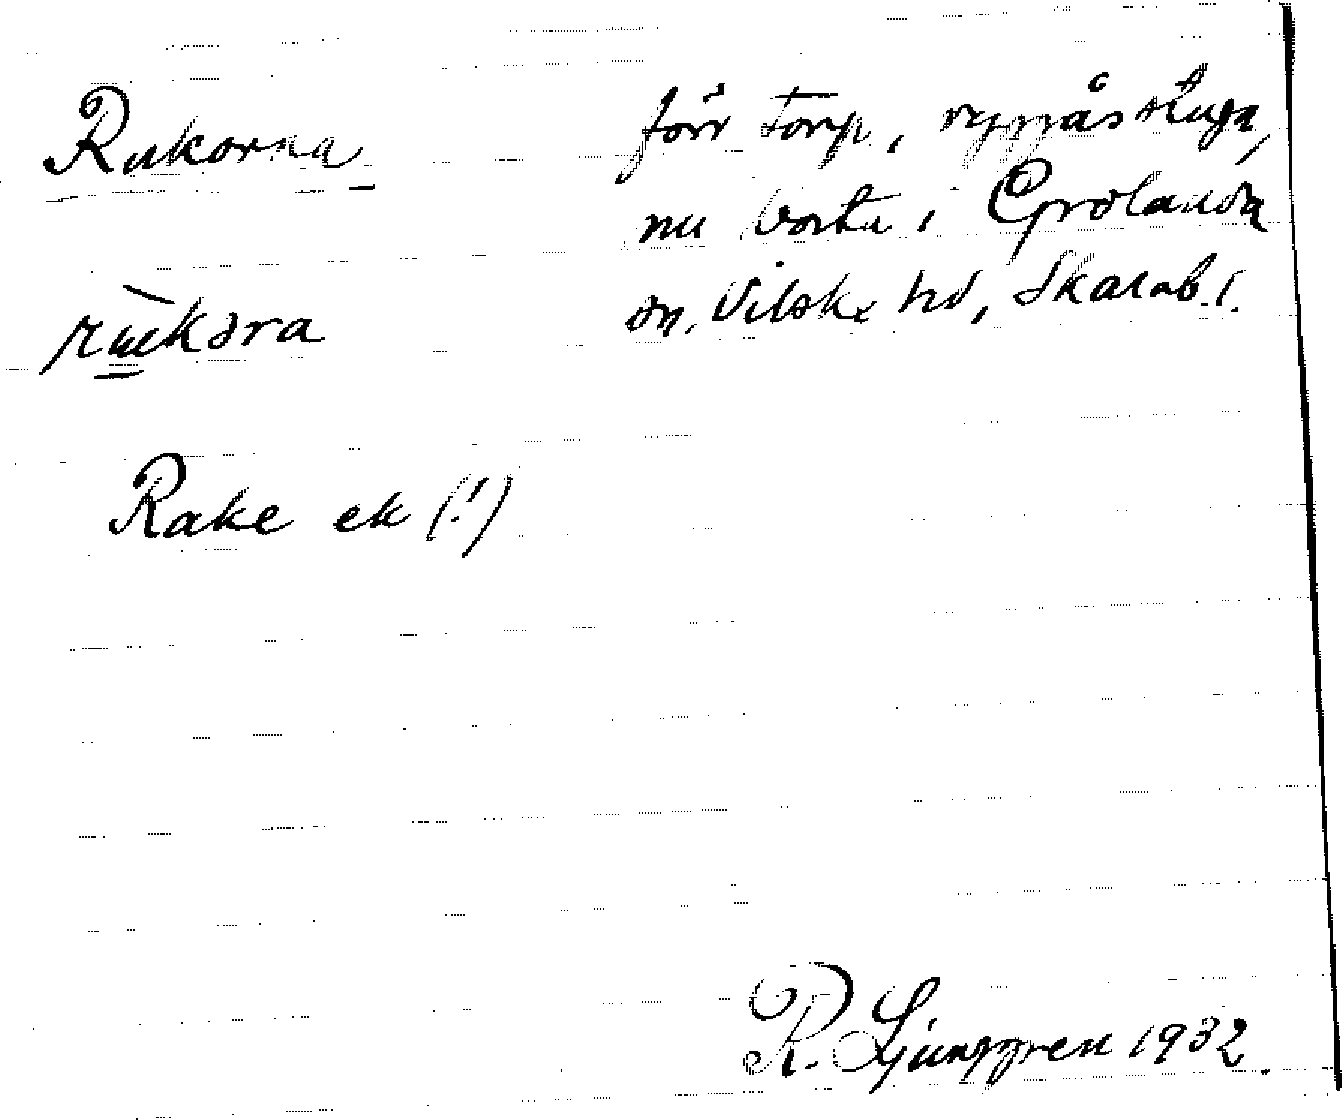 Rukorna
förr torp, ryggåsstuga,
nu borta i Grolanda
sn, Vilske hd, Skarab. l.
rukora
Rake ek (!)
R. Ljunggren 1932.